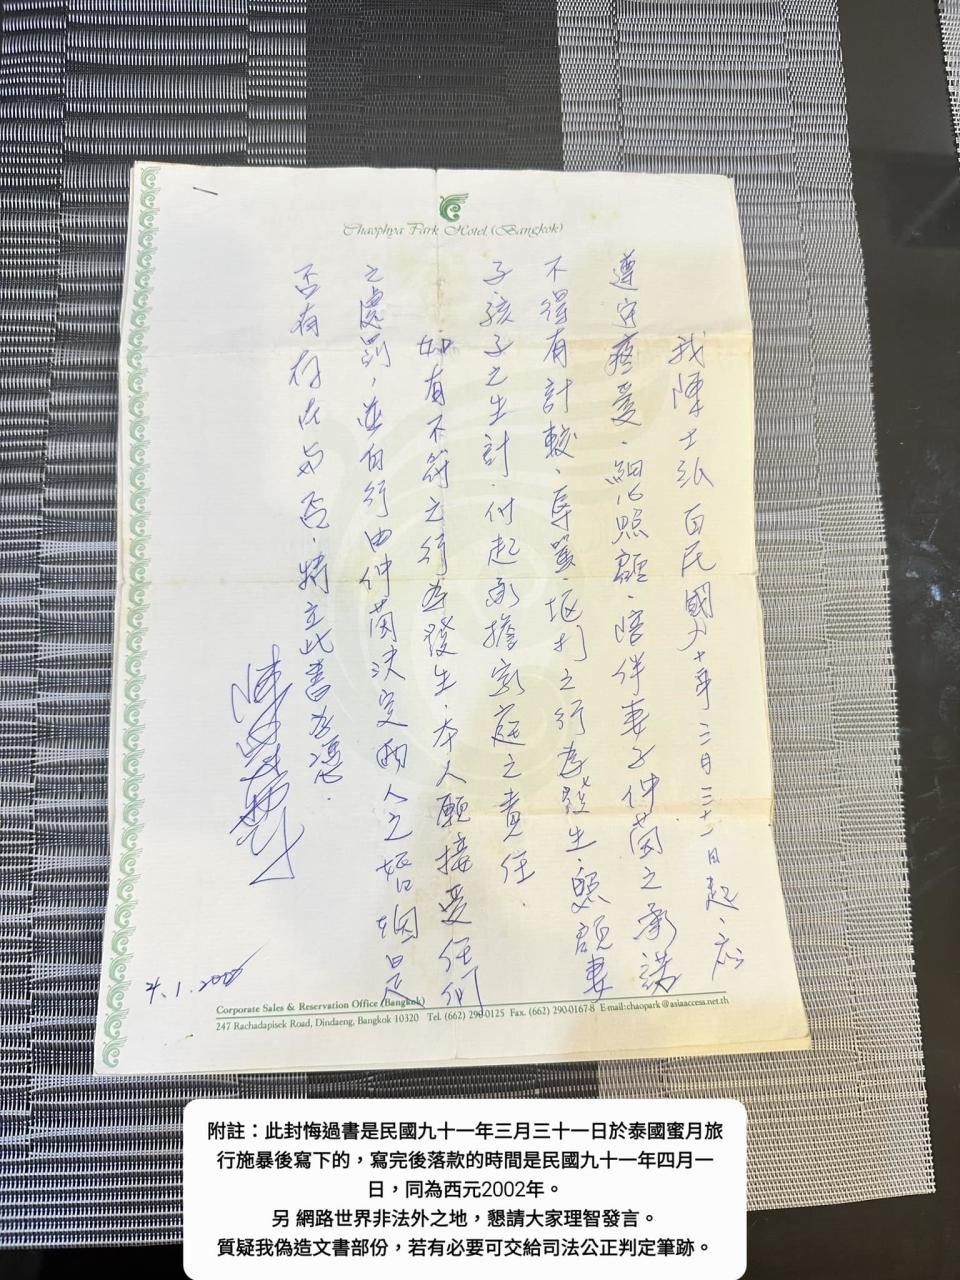 Chaophya Park Hotel (Bangkok)
我陳士 自民國 十年三月三十一日起、应
遵守疼愛、細心照顧、陪伴妻子仲茵之承諾
不得有計較、辱罵、毆打之行為發生、照顧妻
子、孩子之生計、付起承擔家庭之責任.
如有不符之行為發生、本人願接受任何
之處罰，並自行由仲茵決定兩人之婚姻是
否有存在与否、特立此書為憑.
4.1.
Corporate Sales & Reservation Office (Bangkok)
247 Rachadapisek Road, Dindaeng, Bangkok 10320 Tel. (662) 290-0125 Fax. (662) 290-0167-8 E-mail:chaopark@asiaaccess.net.th
附註：此封悔過書是民國九十一年三月三十一日於泰國蜜月旅
行施暴後寫下的，寫完後落款的時間是民國九十一年四月一
日，同為西元2002年。
另 網路世界非法外之地，懇請大家理智發言。
質疑我偽造文書部份，若有必要可交給司法公正判定筆跡。